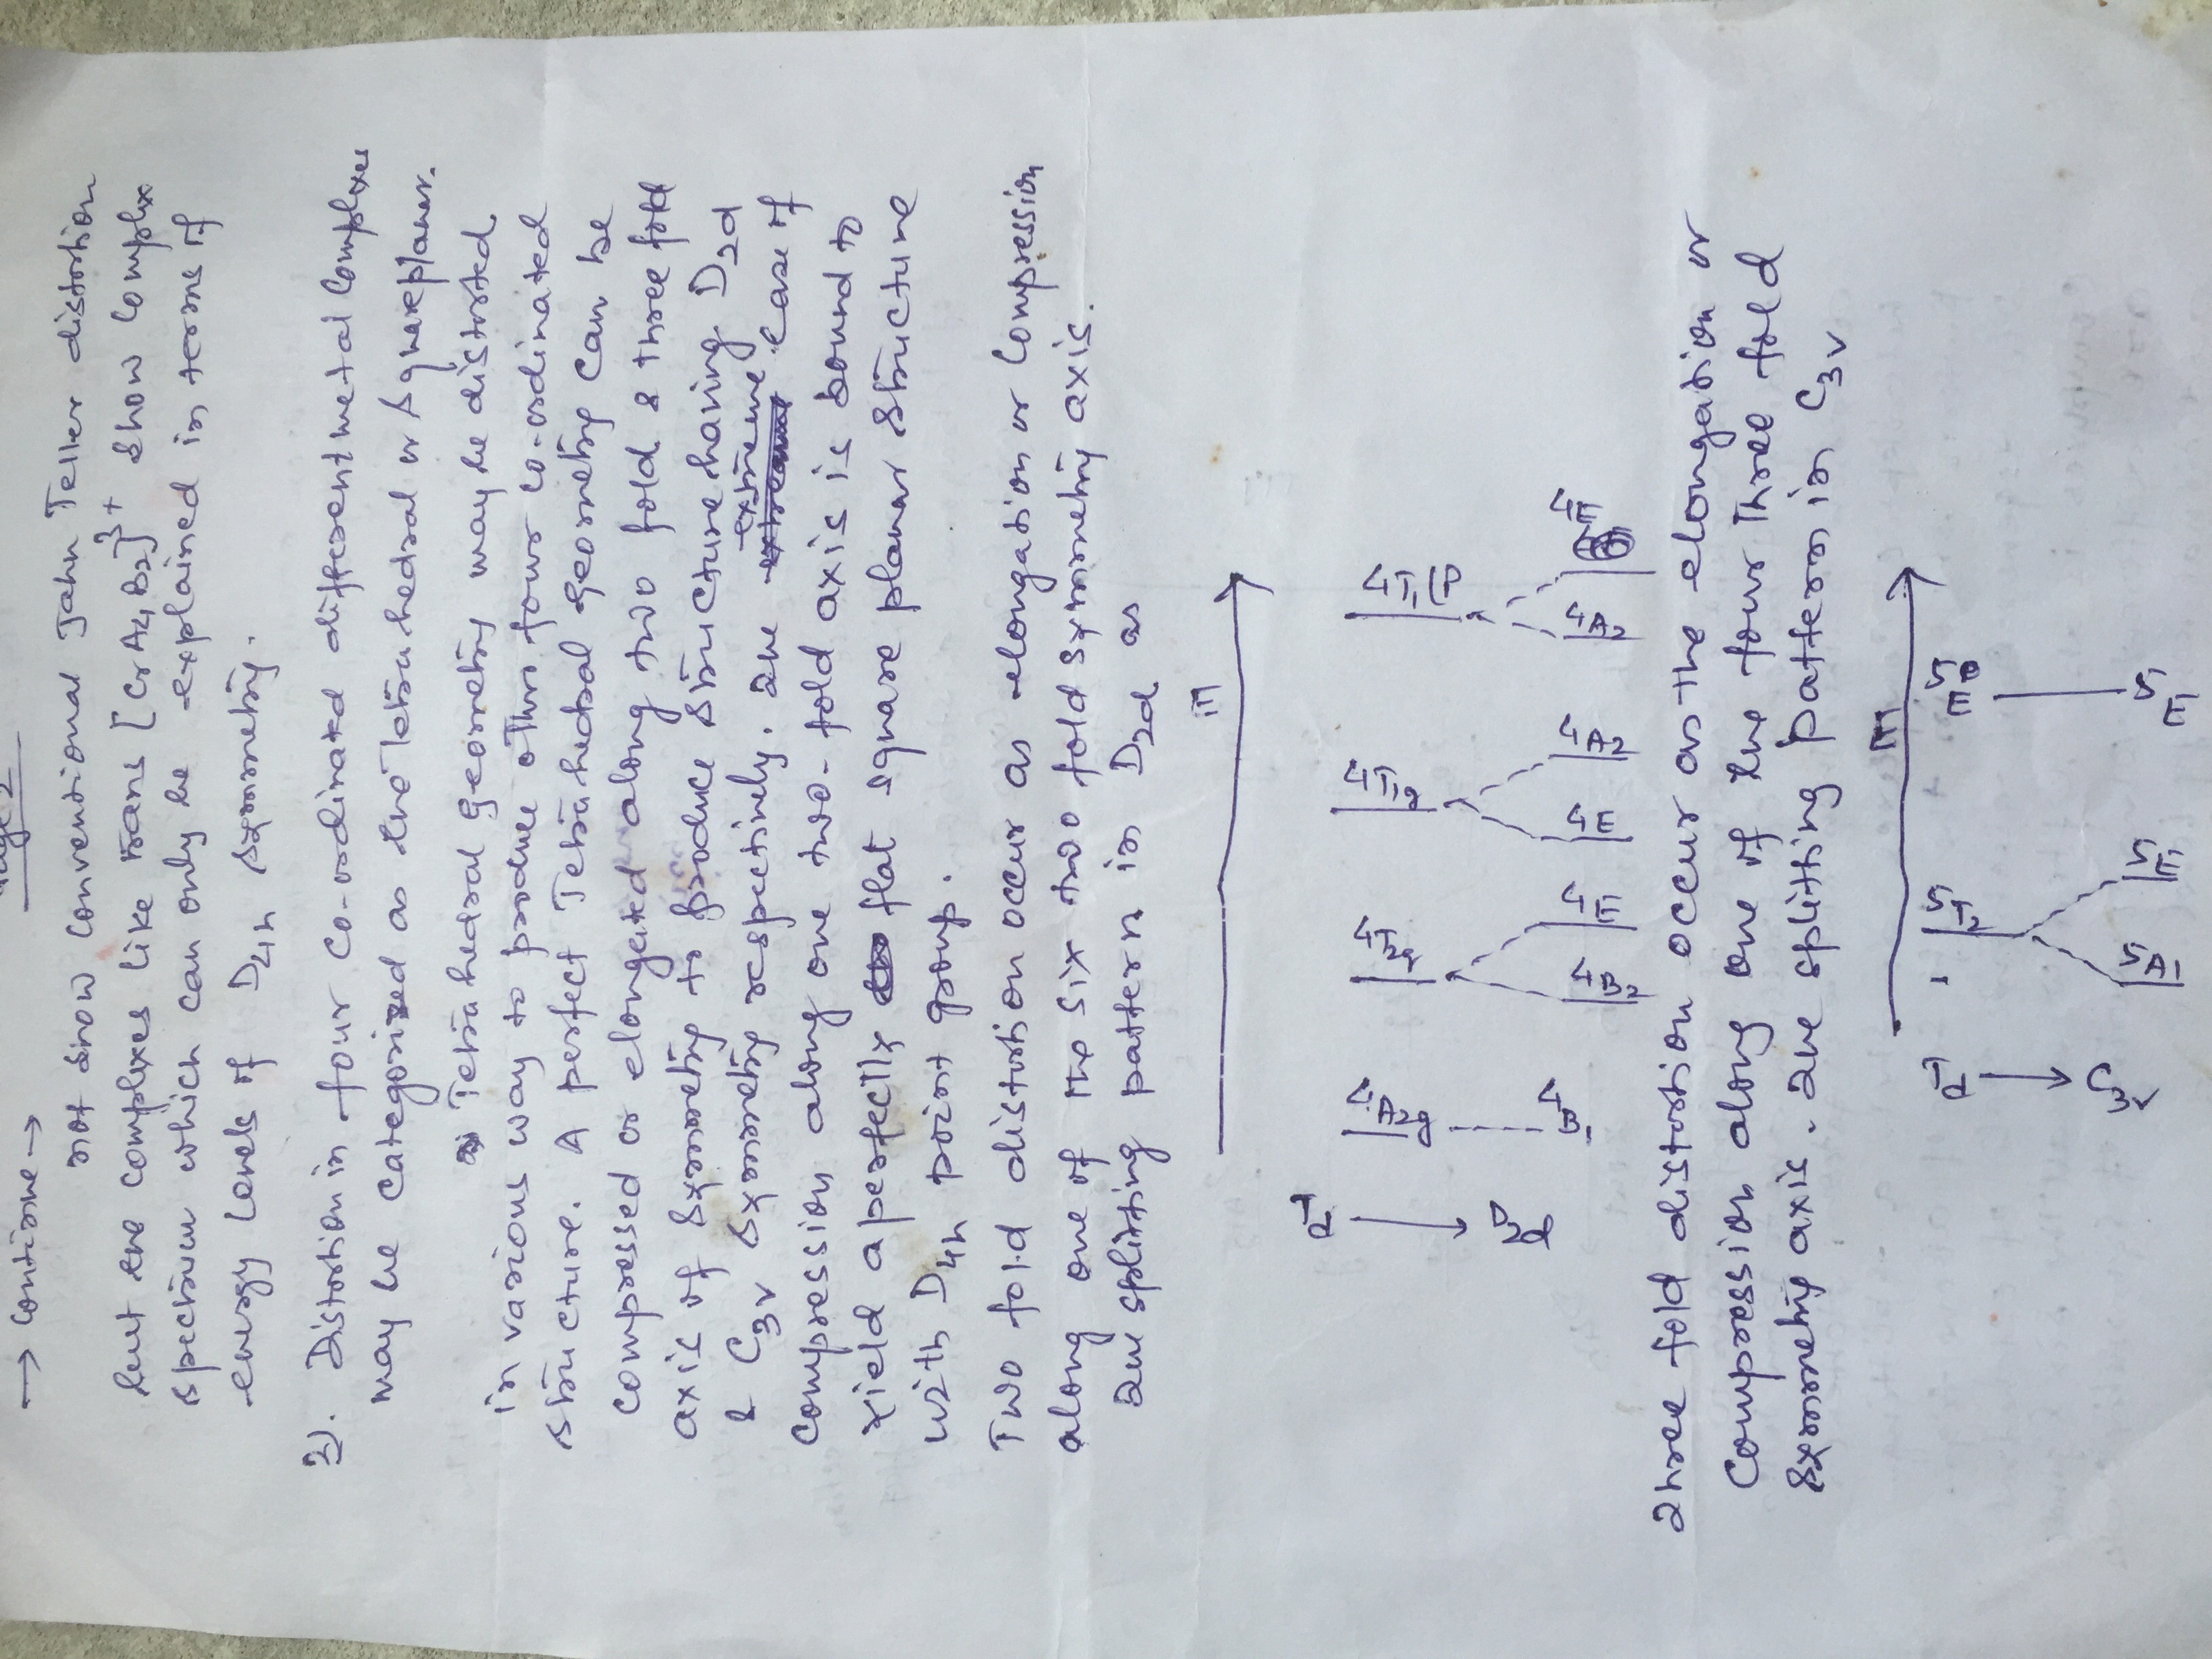 → continue →
not show conventional Jahn Teller distortion
but the complexes like trans [CrA4B2]+ show complex
spectrum which can only be explained in terms of
energy levels of D4h symmetry.
2). Distortion in four co-ordinated different metal complexes
may be categorized as the tetrahedral or squareplaner.
Tetrahedral geometry may be distorted
in various way to produce other four co-ordinated
structure. A perfect Tetrahedral geometry can be
compressed or elongated along two fold & three fold
axis of symmetry to produce structure having D2d
& C3v symmetry respectively. The extreme case of
compression along one two-fold axis is bound to
yield a perfectly flat square planar structure
with D4h point group.
Two fold distortion occur as elongation or compression
along one of the six two fold symmetry axis.
The splitting pattern in D2d as
E
Td
D2d
Three fold distortion occur as the elongation or
compression along one of the four Three fold
symmetry axis. The splitting pattern in C3v
E
Td
C3v